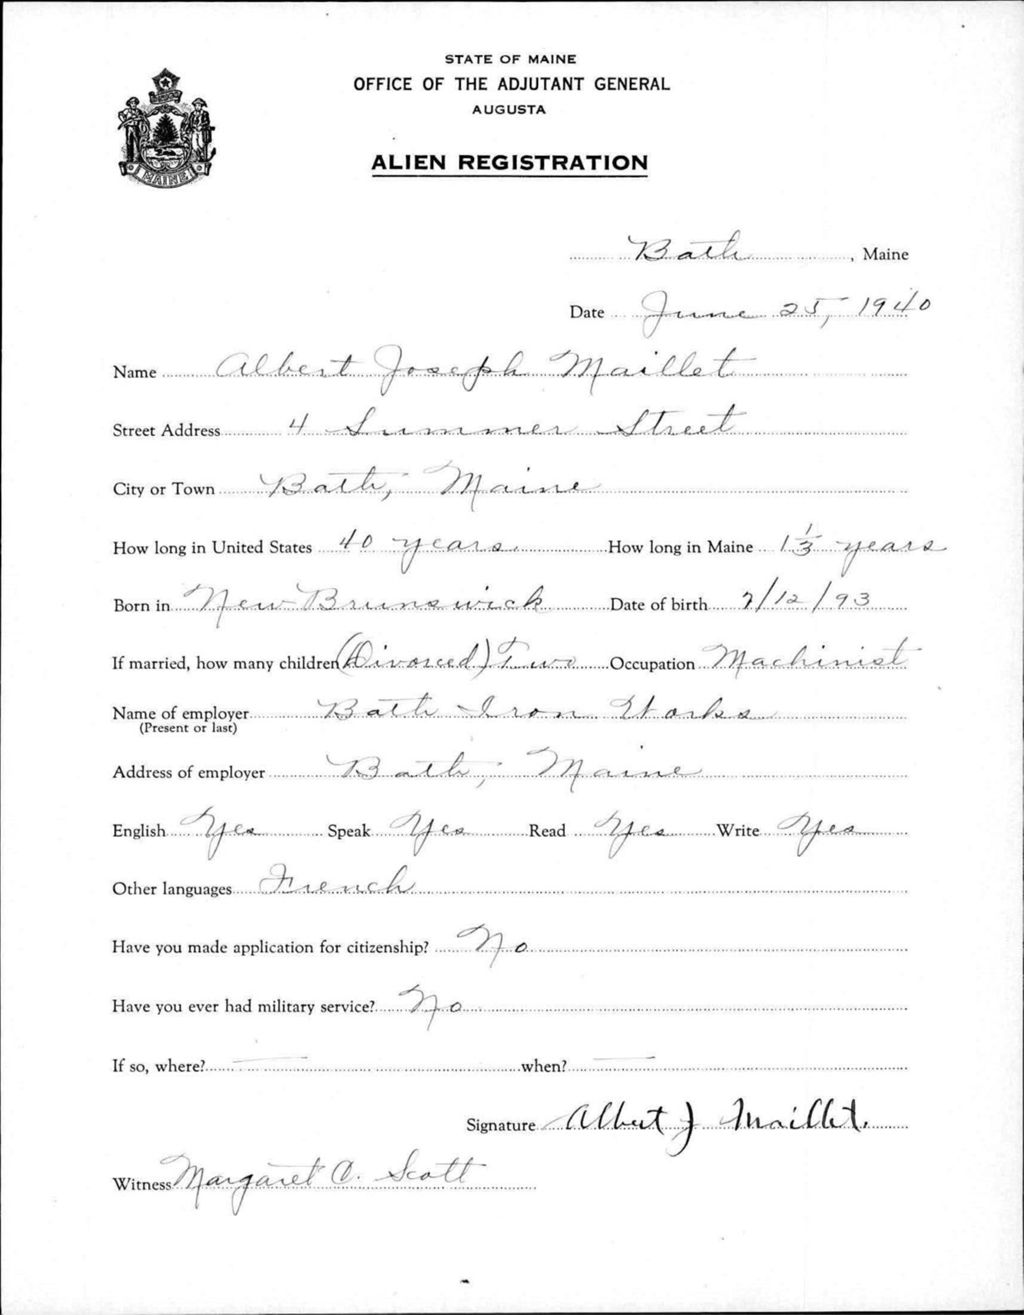 STATE OF MAINE
OFFICE OF THE ADJUTANT GENERAL
AUGUSTA
ALIEN REGISTRATION
MAINE
Bath, Maine
Date June 25, 1940
Name Albert Joseph Maillet
Street Address 4 Summer Street
City or Town Bath, Maine
How long in United States 40 years. How long in Maine 1 1/3 years
Born in New Brunswick Date of birth 7/12/93
If married, how many children (Divorced) Two Occupation Machinist
Name of employer Bath Iron Works
(Present or last)
Address of employer Bath, Maine
English Yes Speak Yes Read Yes Write Yes
Other languages French
Have you made application for citizenship? No
Have you ever had military service? No
If so, where? — when? —
Signature Albert J Maillet.
Witness Margaret C. Scott